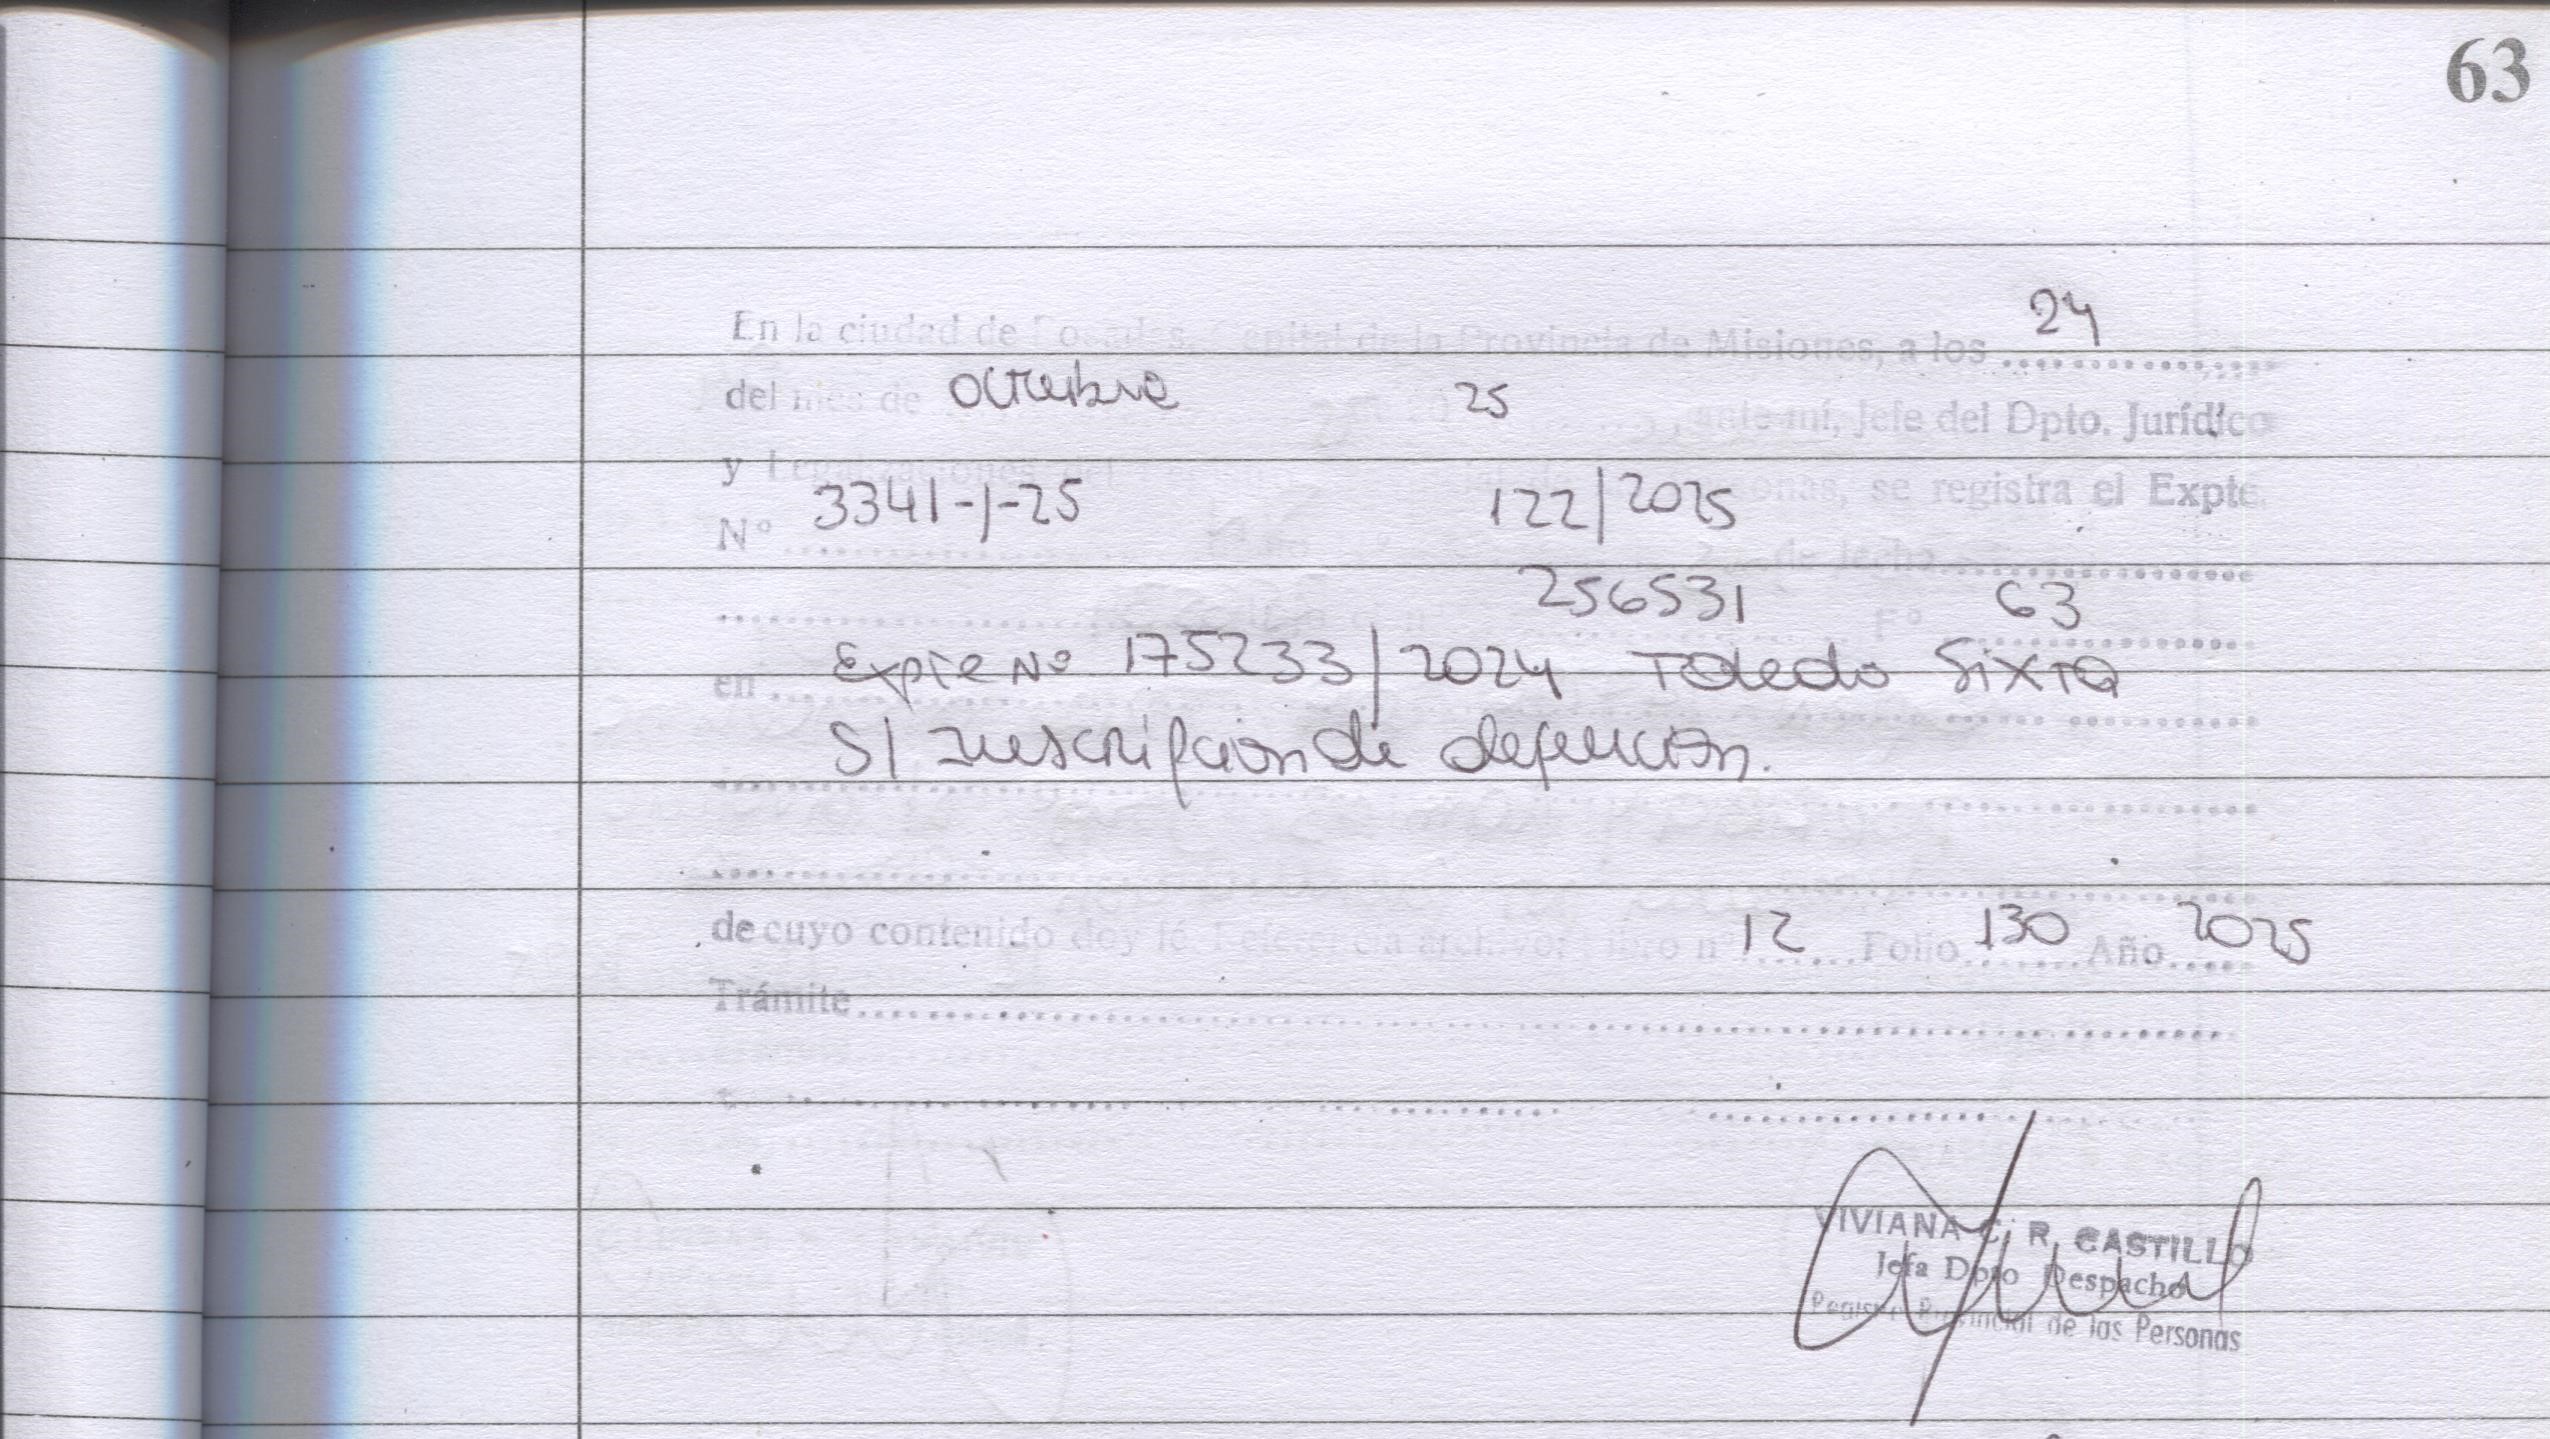 63
En la ciudad de Posadas, Capital de la Provincia de Misiones, a los 24
del mes de octubre 25, ante mí, Jefe del Dpto. Jurídico
y Legalizaciones del se registra el Expte.
N° 3341-J-25 122/2025 de fecha
256531 F° 63
en Expte Nº 175233/2024 Toledo Sixta
S/ Inscripcion de defuncion.
de cuyo contenido doy fe. Referencia archivo: Libro n° 12 Folio 130 Año 2025
Trámite
VIVIANA C. R. CASTILLO
Jefa Dpto Despacho
Registro Provincial de las Personas